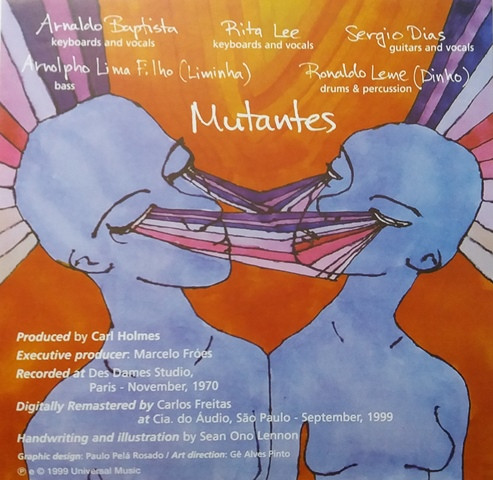 Arnaldo Baptista
keyboards and vocals
Rita Lee
keyboards and vocals
Sergio Dias
guitars and vocals
Arnolpho Lima Filho (Liminha)
bass
Ronaldo Leme (Dinho)
drums & percussion
Mutantes
Produced by Carl Holmes
Executive producer: Marcelo Fróes
Recorded at Des Dames Studio,
Paris - November, 1970
Digitally Remastered by Carlos Freitas
at Cia. do Áudio, São Paulo - September, 1999
Handwriting and illustration by Sean Ono Lennon
Graphic design: Paulo Pelá Rosado / Art direction: Gê Alves Pinto
℗ e © 1999 Universal Music